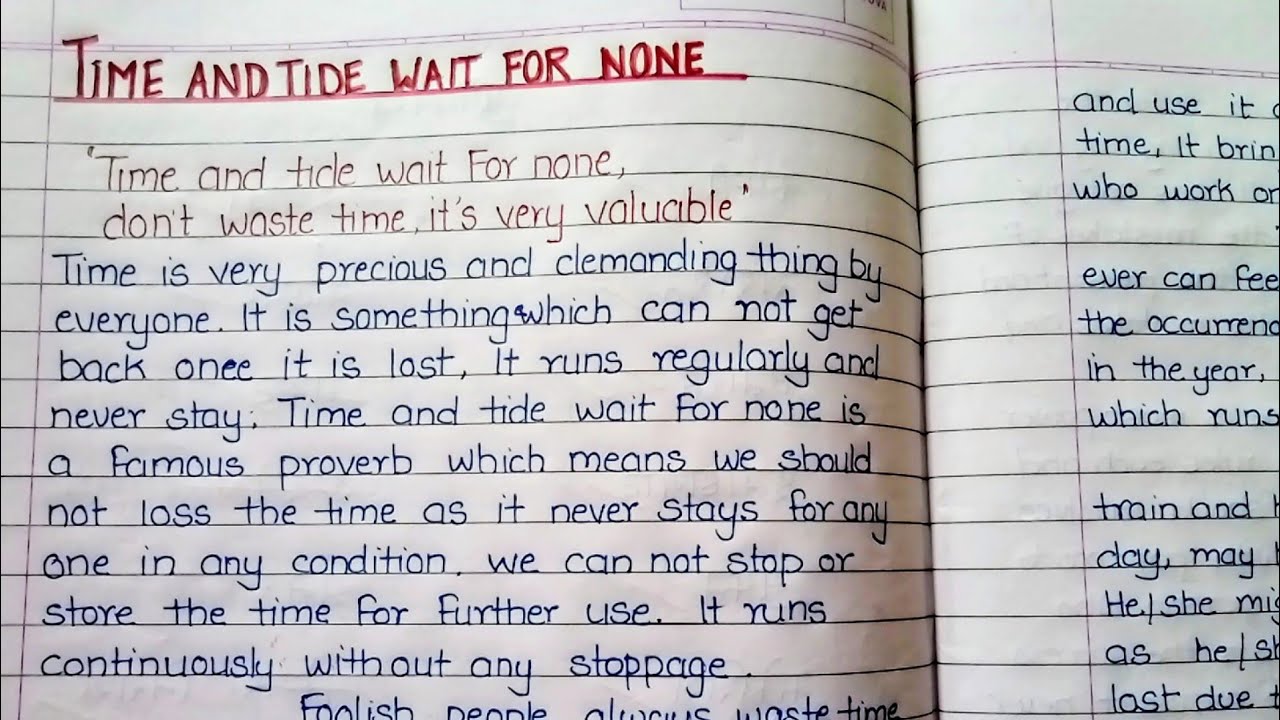 TIME AND TIDE WAIT FOR NONE
"Time and tide wait For none,
don't waste time, it's very valuable"
Time is very precious and demanding thing by
everyone. It is something which can not get
back once it is lost, It runs regularly and
never stay. Time and tide wait For none is
a famous proverb which means we should
not loss the time as it never stays for any
one in any condition. we can not stop or
store the time for further use. It runs
continuously without any stoppage.
Foolish people always waste time
and use it
time, It
who work
ever can
the
in the year,
which runs
train and
day, may
He/she
as
last due